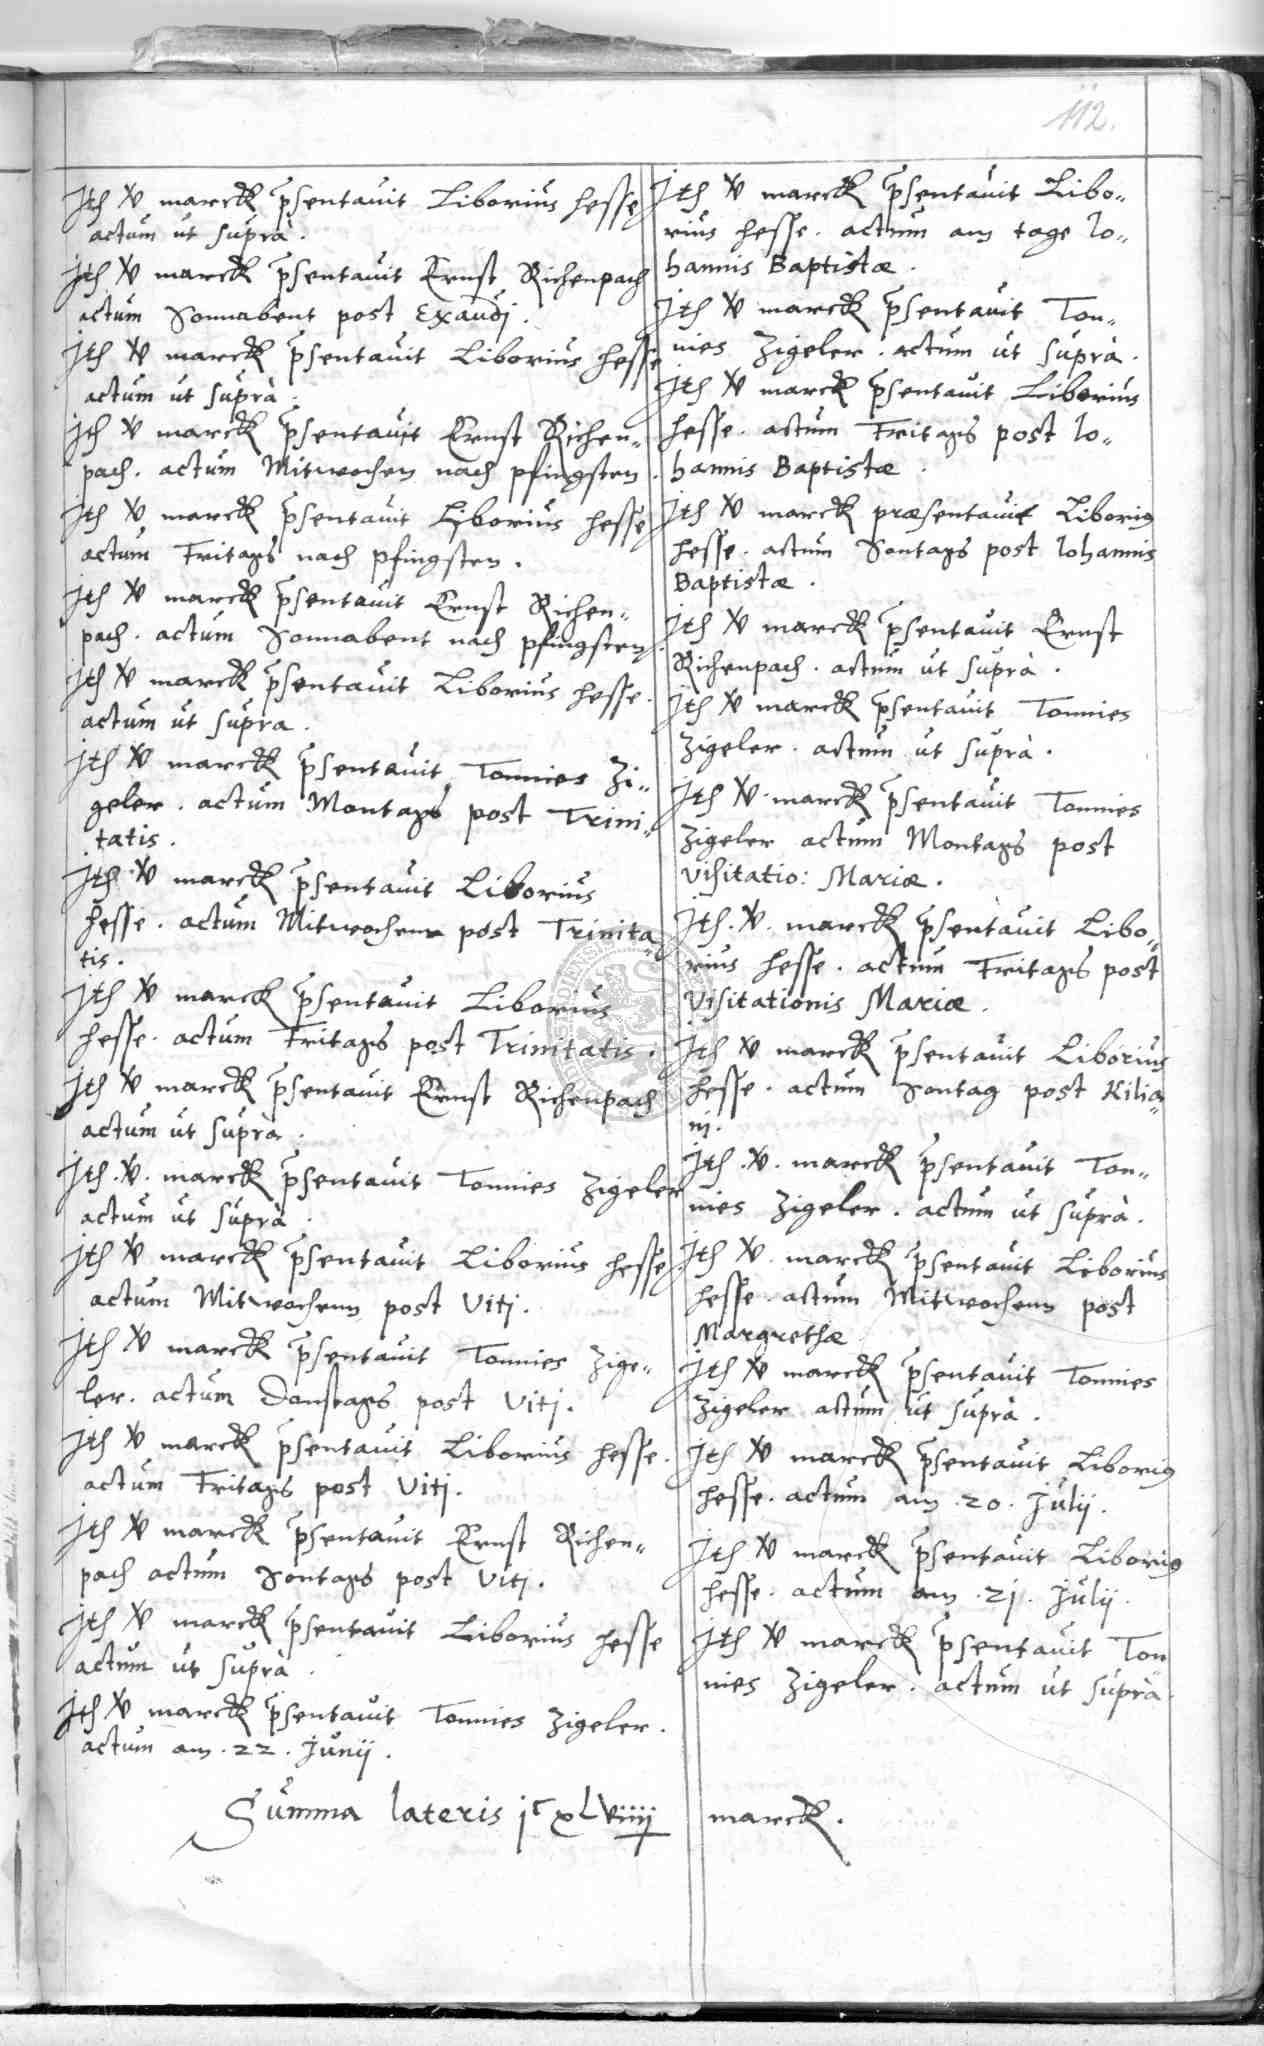 112.
Jtē v̶ marck p̄sentauit Liborius Hesse
actum ut suprà.
Jtē v̶ marck p̄sentauit Ernst Richenpach
actum Sonnabent post Exaudj.
Jtē v̶ marck p̄sentauit Liborius Hesse
actum ut suprà.
Jtē v̶ marck p̄sentauit Ernst Richen„
pach. actum Mitwochen nach pfingsten.
Jtē v̶ marck p̄sentauit Lÿborius Hesse
actum Fritags nach pfingsten.
Jtē v̶ marck p̄sentauit Ernst Richen„
pach. actum Sonnabent nach pfingsten.
Jtē v̶ marck p̄sentauit Liborius Hesse.
actum ut supra.
Jtē v̶ marck p̄sentauit Tonnies Zi„
geler. actum Montags post Trini„
tatis.
Jtē v̶ marck p̄sentauit Liborius
Hesse. actum Mitwochenn post Trinita„
tis.
Jtē v̶ marck p̄sentauit Liborius
Hesse. actum Fritags post Trinitatis.
Jtē v̶ marck p̄sentauit Ernst Richenpach
actum ut suprà.
Jtē .v̶. marck p̄sentauit Tonnies Zigeler
actum ut suprà.
Jtē v̶ marck p̄sentauit Liborius Hesse.
actum Mitwochenn post Vitj.
Jtē v̶ marck p̄sentauit Tonnies Zige„
ler. actum Donstags post Vitj.
Jtē v̶ marck p̄sentauit Liborius Hesse.
actum Fritags post Vitj.
Jtē v̶ marck p̄sentauit Ernst Richen„
pach actum Sontags post Vitj.
Jtē v̶ marck p̄sentauit Liborius Hesse
actum ut suprà.
Jtē v̶ marck p̄sentauit Tonnies Zigeler.
actum am .22. Junij.
Jtē v̶ marck p̄sentauit Libo„
rius Hesse. actum am tage Jo„
hannis Baptistæ.
Jtē v̶ marck p̄sentauit Ton„
nies Zigeler. actum ut suprà.
Jtē v̶ marck p̄sentauit Liborius
Hesse. actum Fritags post Jo„
hannis Baptistæ.
Jtē v̶ marck præsentauit Liborius
Hesse. actum Sontags post Johannis
Baptistæ.
Jtē v̶ marck p̄sentauit Ernst
Richenpach. actum ut suprà.
Jtē v̶ marck p̄sentauit Tonnies
Zigeler. actum ut suprà.
Jtē v̶. marck p̄sentauit Tonnies
Zigeler actum Montags post
Visitatio: Mariæ.
Jtē .v̶. marck p̄sentauit Libo„
rius Hesse. actum Fritags post
Visitationis Mariæ.
Jtē v̶ marck p̄sentauit Liborius
Hesse. actum Sontag post Kilia„
nj.
Jtē .v̶. marck p̄sentauit Ton„
nies Zigeler. actum ut suprà.
Jtē v̶. marck p̄sentauit Liborius
Hesse. actum Mitwochenn post
Margrethæ
Jtē v̶ marck p̄sentauit Tonnies
Zigeler actum ut suprà.
Jtē v̶ marck p̄sentauit Liborius
Hesse. actum am .20. Julij.
Jtē v̶ marck p̄sentauit Liborius
Hesse. actum am .2j. Julij.
Jtē v̶ marck p̄sentauit Ton
nies Zigeler. actum ut suprà.
Summa lateris jᶜ xLviiij̶ marck.